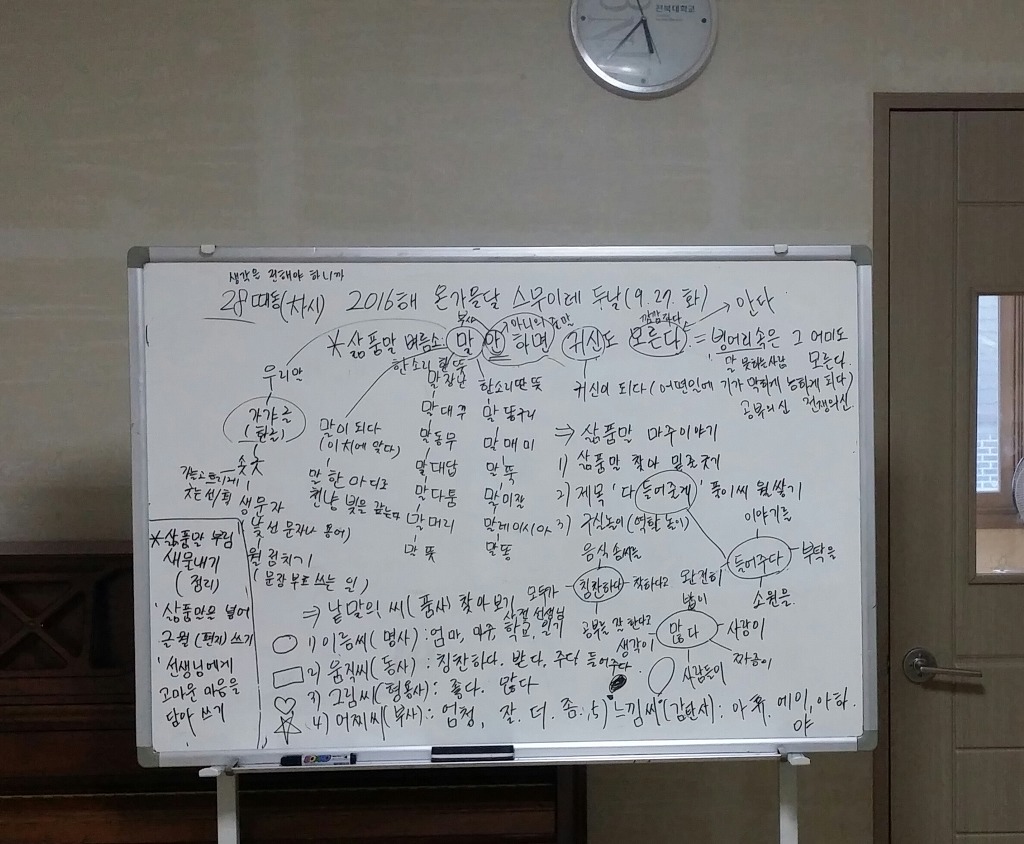 전북대학교
생각을 전해야 하니까
28때틈(차시) 2016해 온가을달 스무이레 두날(9.27.화)
안다
부사
아니의 준말
깜깜하다
*삶품말 벼름소: 말 안 하면 귀신도 모른다. = 벙어리속은 그 어미도
말 못하는사람 모른다.
우리만
가갸글
(한글)
숫
생무자
낯선 문자나 용어)
월 점치기
(문장 부호 쓰는 일)
말이 되다
(이치에 맞다)
말 한 마디로
천냥 빚을 갚는다
한소리 한뜻
말장난
말대꾸
말동무
말대답
말다툼
말머리
말뜻
한소리딴뜻
말똥구리
말매미
말뚝
말미잘
말레이시아
말똥
귀신이 되다(어떤일에 기가 막히게 능하게 되다)
공부의신 전쟁의신
⇒ 삶품말 마주이야기
1) 삶품말 찾아 밑줄긋기
2) 제목 '다 들어줄게' 풀이씨 월쌓기
3) 구실놀이(역할 놀이)
이야기를
들어주다
부탁을
완전히
소원을
음식솜씨를
칭찬하다
착하다고
모두가
공부를 잘 한다고
많이
많다
사람이
생각이
짜증이
사람들이
*삶품말 부림
새뭇내기
(정리)
' 삶품말은 넣어
글월(편지) 쓰기
' 선생님에게
고마운 마음을
담아 쓰기
⇒ 낱말의 씨(품사) 찾아보기
1) 이름씨(명사): 엄마, 마주, 학교, 일기
선생님
2) 움직씨(동사): 칭찬하다. 받다. 주다 들어주다.
3) 그림씨(형용사): 좋다. 많다
4) 어찌씨(부사): 엄청, 잘. 더. 좀. 5) 느낌씨(감탄사): 아휴. 에이, 아하.
야